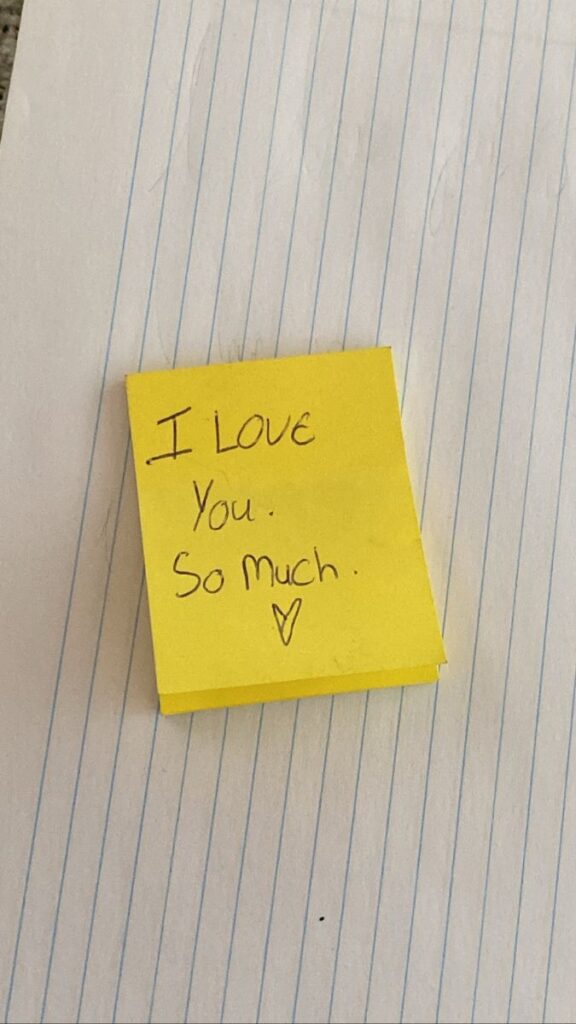 I LOVE
You.
So Much.